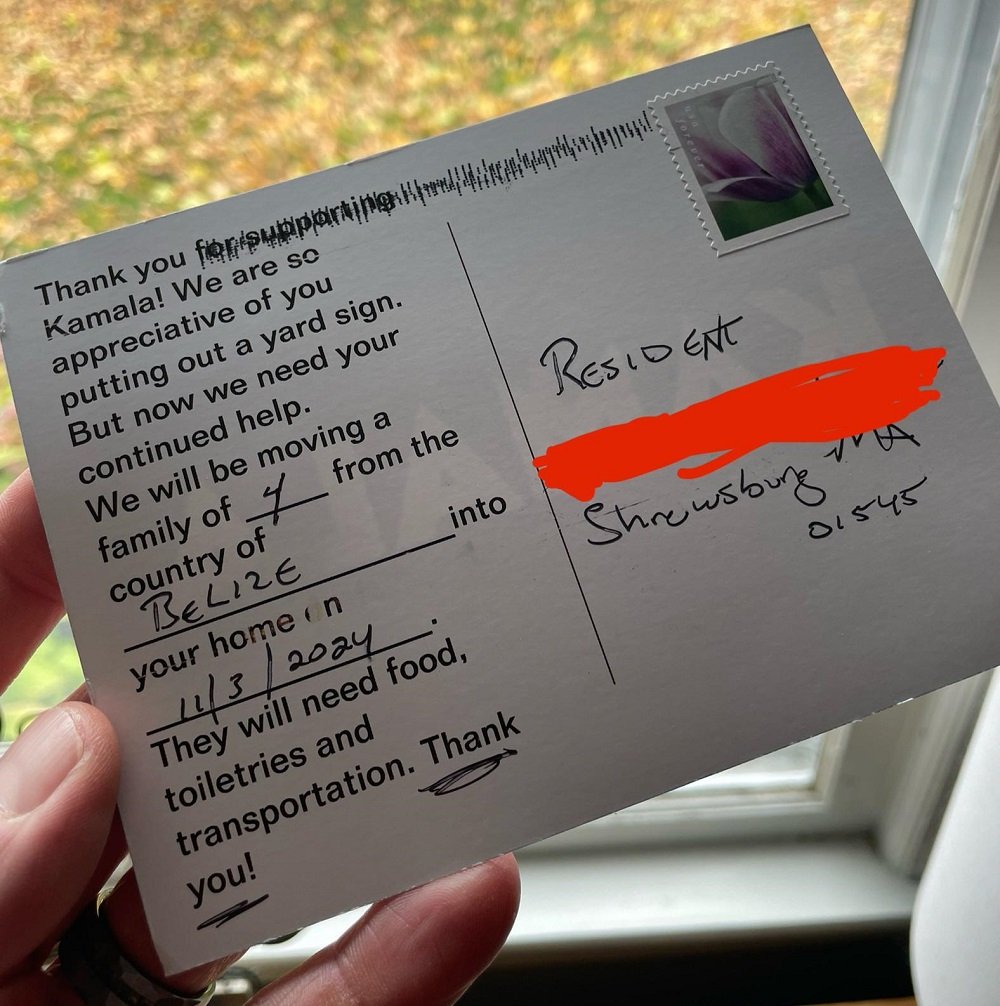 Thank you for supporting
Kamala! We are so
appreciative of you
putting out a yard sign.
But now we need your
continued help.
We will be moving a
family of 4 from the
country of
BELIZE into
your home on
11/3/2024.
They will need food,
toiletries and
transportation. Thank
you!
USA forever
RESIDENT
Shrewsbury MA
01545